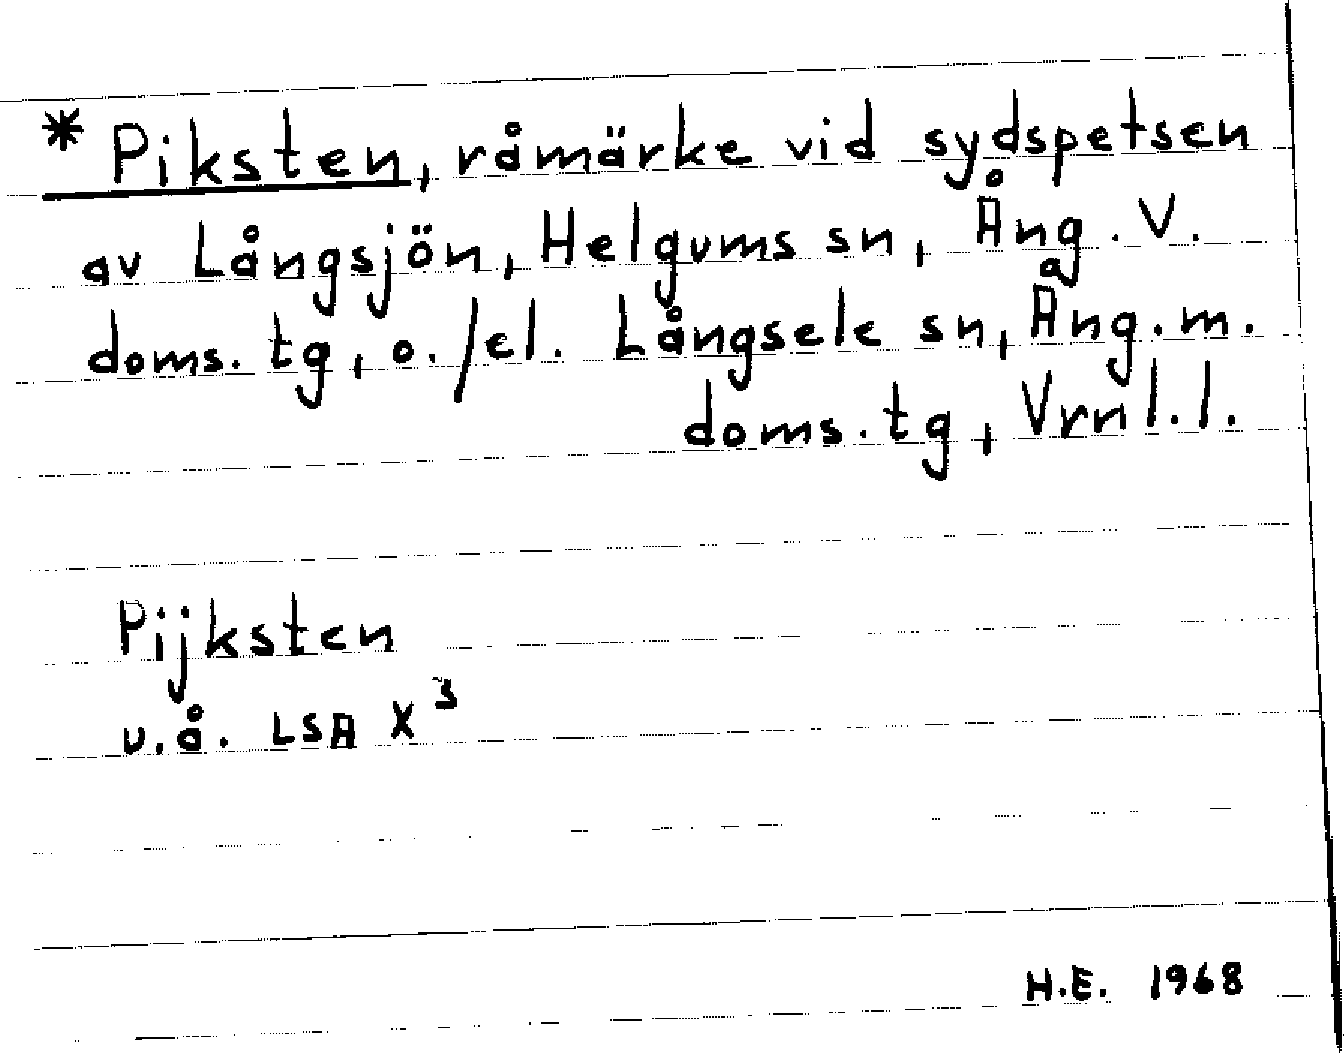 * Piksten, råmärke vid sydspetsen
av Långsjön, Helgums sn, Ång. V.
doms. tg, o./el. Långsele sn, Ång. m.
doms. tg, Vrnl. l.
Pijksten
u.å. LSA X³
H.E. 1968